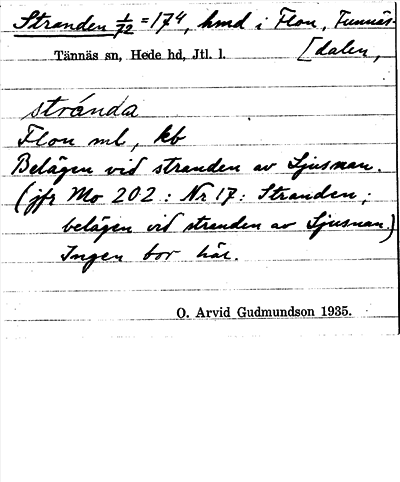 Stranden 1/72 = 17⁴, hmd i Flon, Funnäs-
[dalen,
Tännäs sn, Hede hd, Jtl. l.
stránda
Flon ml, kb
Belägen vid stranden av Ljusnan.
(jfr Mo 202: Nr 17: Stranden;
belägen vid stranden av Ljusnan.)
Ingen bor här.
O. Arvid Gudmundson 1935.